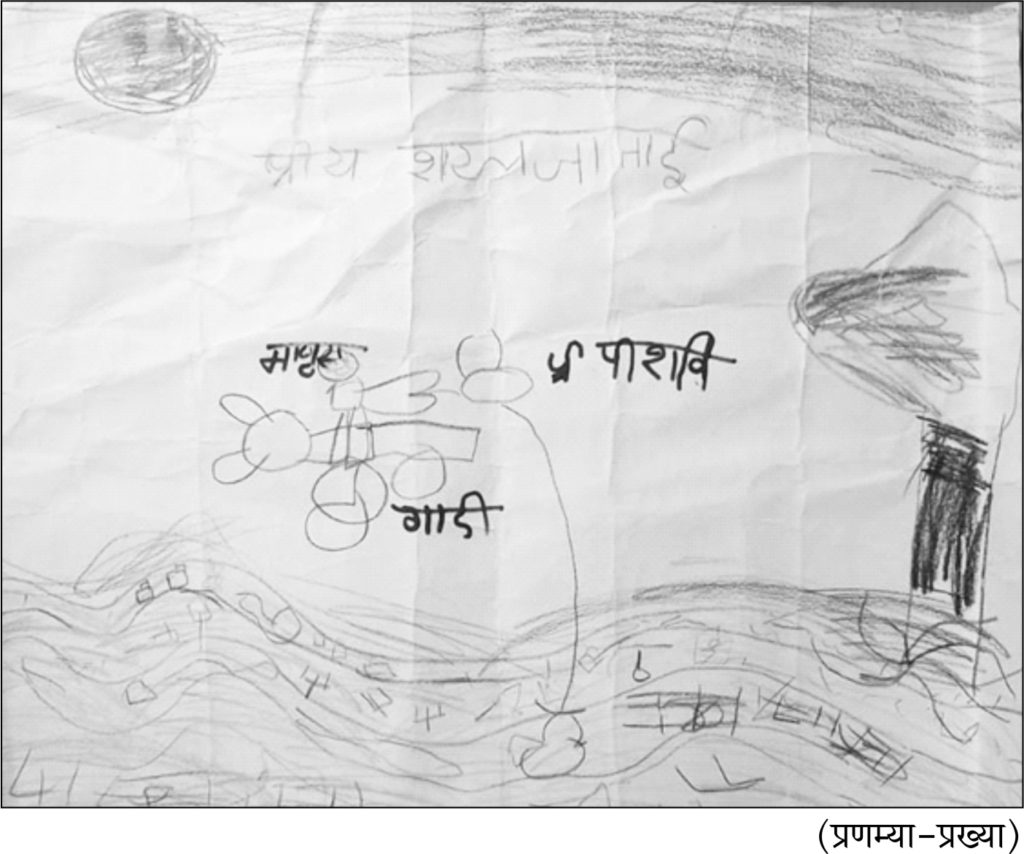 प्रीय शयलजाताई
माणूस
पीशवि
गाडी
(प्रणम्या-प्रख्या)